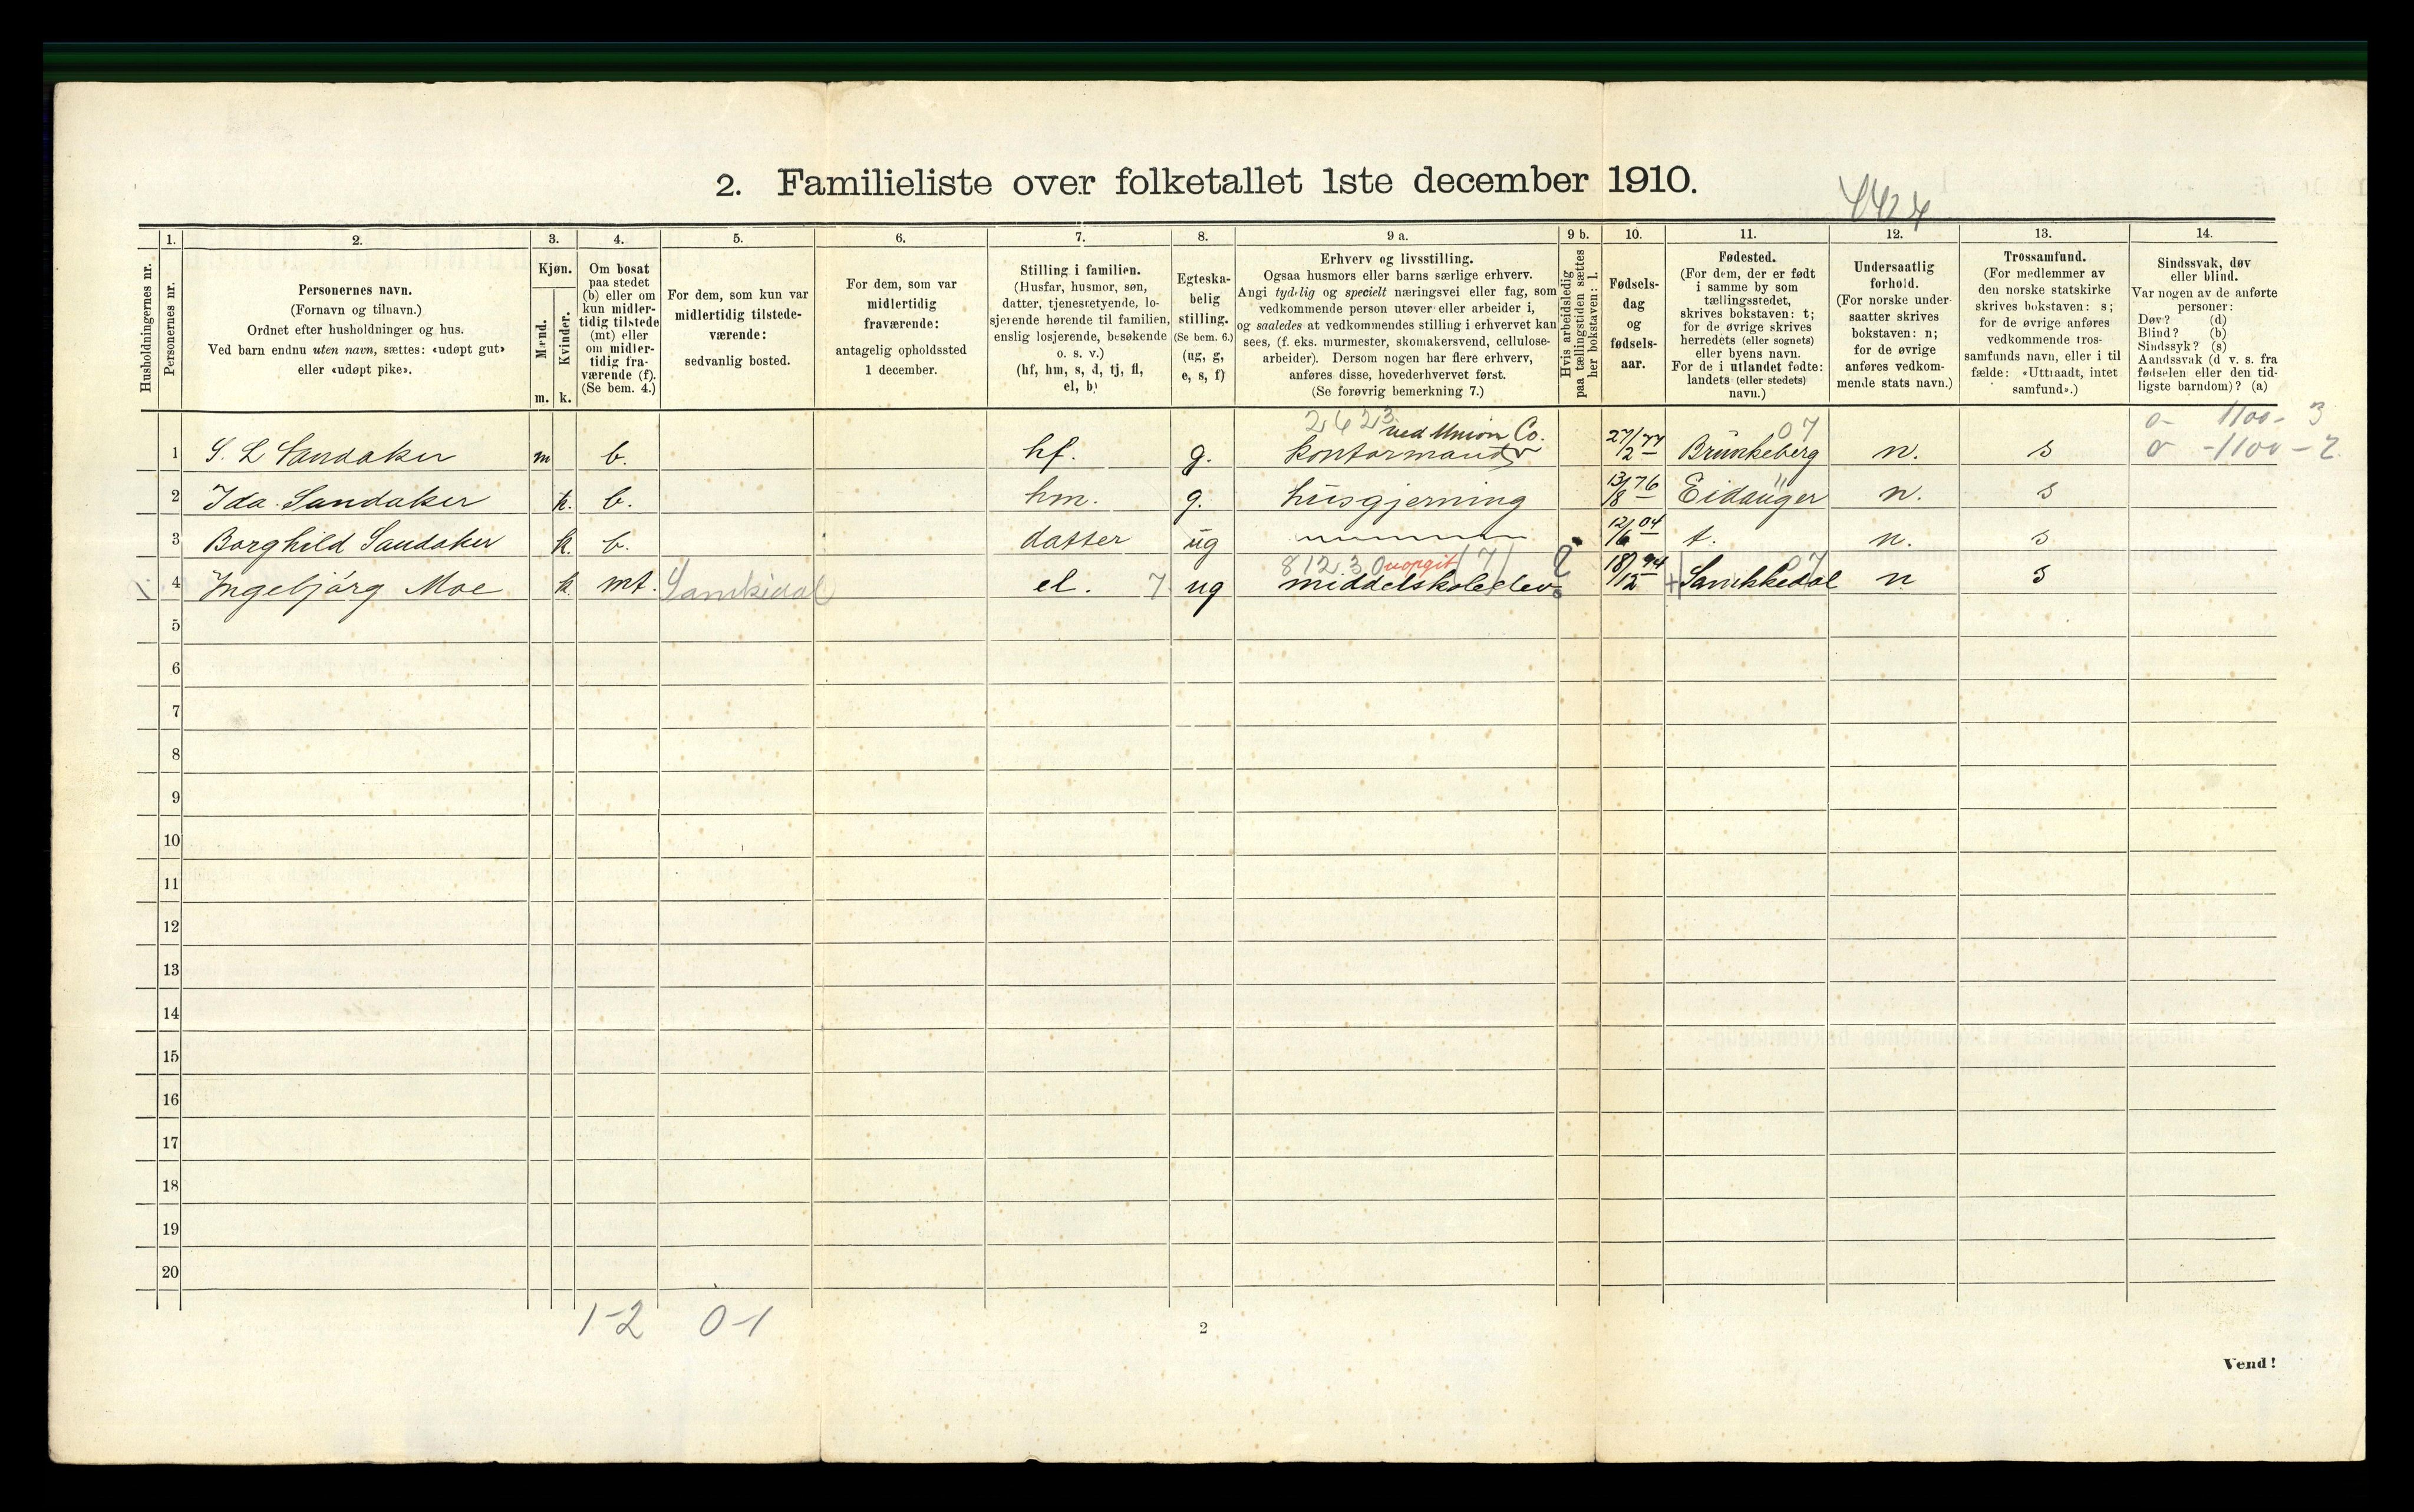 2. Familieliste over folketallet 1ste december 1910.
Husholdningernes nr.
1.
Personernes nr.
2.
Personernes navn.
(Fornavn og tilnavn.)
Ordnet efter husholdninger og hus.
Ved barn endnu uten navn, sættes: «udøpt gut»
eller «udøpt pike».
3.
Kjøn.
Mænd.
Kvinder.
m. k.
4.
Om bosat
paa stedet
(b) eller om
kun midler-
tidig tilstede
(mt) eller
om midler-
tidig fra-
værende (f).
(Se bem. 4.)
5.
For dem, som kun var
midlertidig tilstede-
værende:
sedvanlig bosted.
6.
For dem, som var
midlertidig
fraværende:
antagelig opholdssted
1 december.
7.
Stilling i familien.
(Husfar, husmor, søn,
datter, tjenestetyende, lo-
sjerende hørende til familien,
enslig losjerende, besøkende
o. s. v.)
(hf, hm, s, d, tj, fl,
el, b)
8.
Egteska-
belig
stilling.
(Se bem. 6.)
(ug, g,
e, s, f)
9 a.
Erhverv og livsstilling.
Ogsaa husmors eller barns særlige erhverv.
Angi tydelig og specielt næringsvei eller fag, som
vedkommende person utøver eller arbeider i,
og saaledes at vedkommendes stilling i erhvervet kan
sees, (f. eks. murmester, skomakersvend, cellulose-
arbeider). Dersom nogen har flere erhverv,
anføres disse, hovederhvervet først.
(Se forøvrig bemerkning 7.)
9 b.
Hvis arbeidsledig
paa tællingstiden sættes
her bokstaven: l.
10.
Fødsels-
dag
og
fødsels-
aar.
11.
Fødested.
(For dem, der er født
i samme by som
tællingsstedet,
skrives bokstaven: t;
for de øvrige skrives
herredets (eller sognets)
eller byens navn.
For de i utlandet fødte:
landets (eller stedets)
navn.)
12.
Undersaatlig
forhold.
(For norske under-
saatter skrives
bokstaven: n;
for de øvrige
anføres vedkom-
mende stats navn.)
13.
Trossamfund.
(For medlemmer av
den norske statskirke
skrives bokstaven: s;
for de øvrige anføres
vedkommende tros-
samfunds navn, eller i til
fælde: «Uttraadt, intet
samfund».)
14.
Sindssvak, døv
eller blind.
Var nogen av de anførte
personer:
Døv? (d)
Blind? (b)
Sindssyk? (s)
Aandssvak (d v. s. fra
fødselen eller den tid-
ligste barndom)? (a)
2423 07 0- 1100- 3
ved Union Co.
1 S. L Sandaker m b. hf. g. kontormand 27/2 77 Brunkeberg n. s 0 -1100-2
2 Ida Sandaker k. b. hm. g. husgjerning 13/8 76 Eidanger n. s
3 Borghild Sandaker k. b. datter ug 12/6 04 t. n. s
812.30 uopgit (7) 07
4 Ingebjørg Moe k. mt. el. 7 ug middelskoleelev ? 18/12 94 n s
5
6
7
8
9
10
11
12
13
14
15
16
17
18
19
20
1-2 0-1
2
Vend!